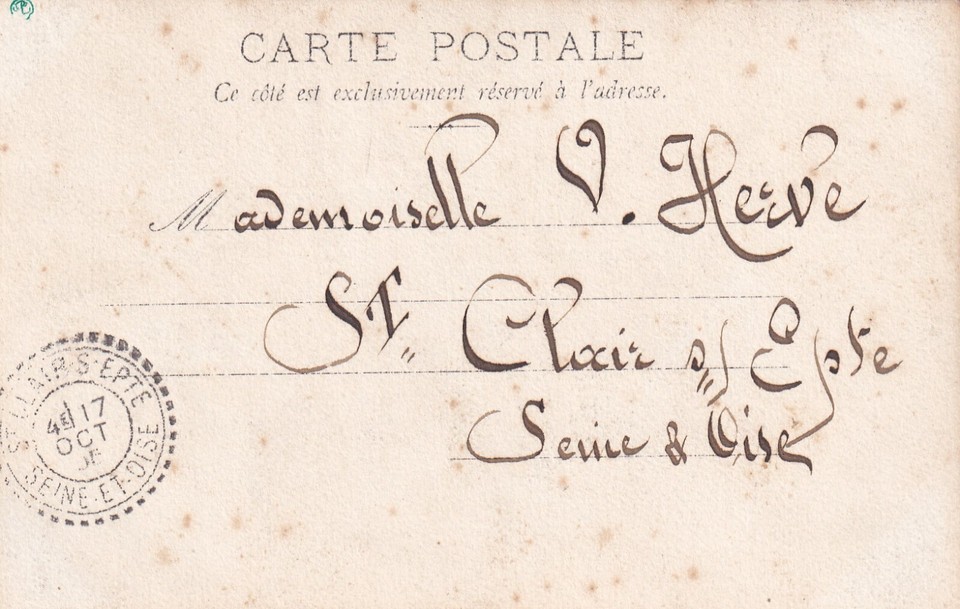 CARTE POSTALE
Ce côté est exclusivement réservé à l'adresse.
Mademoiselle V. Herve
St. Clair s/ Epte
Seine & Oise
ST CLAIR-S-EPTE
4E 17
OCT
SEINE-ET-OISE